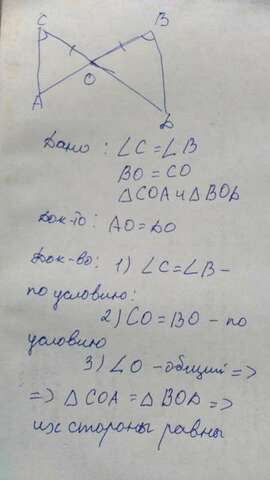 C
B
O
A
D
Дано: ∠C=∠B
BO=CO
△COA и △BOD
Док-ть: AO=DO
Док-во: 1) ∠C=∠B –
по условию:
2) CO=BO – по
условию
3) ∠O – общий =>
=> △COA=△BOD =>
их стороны равны